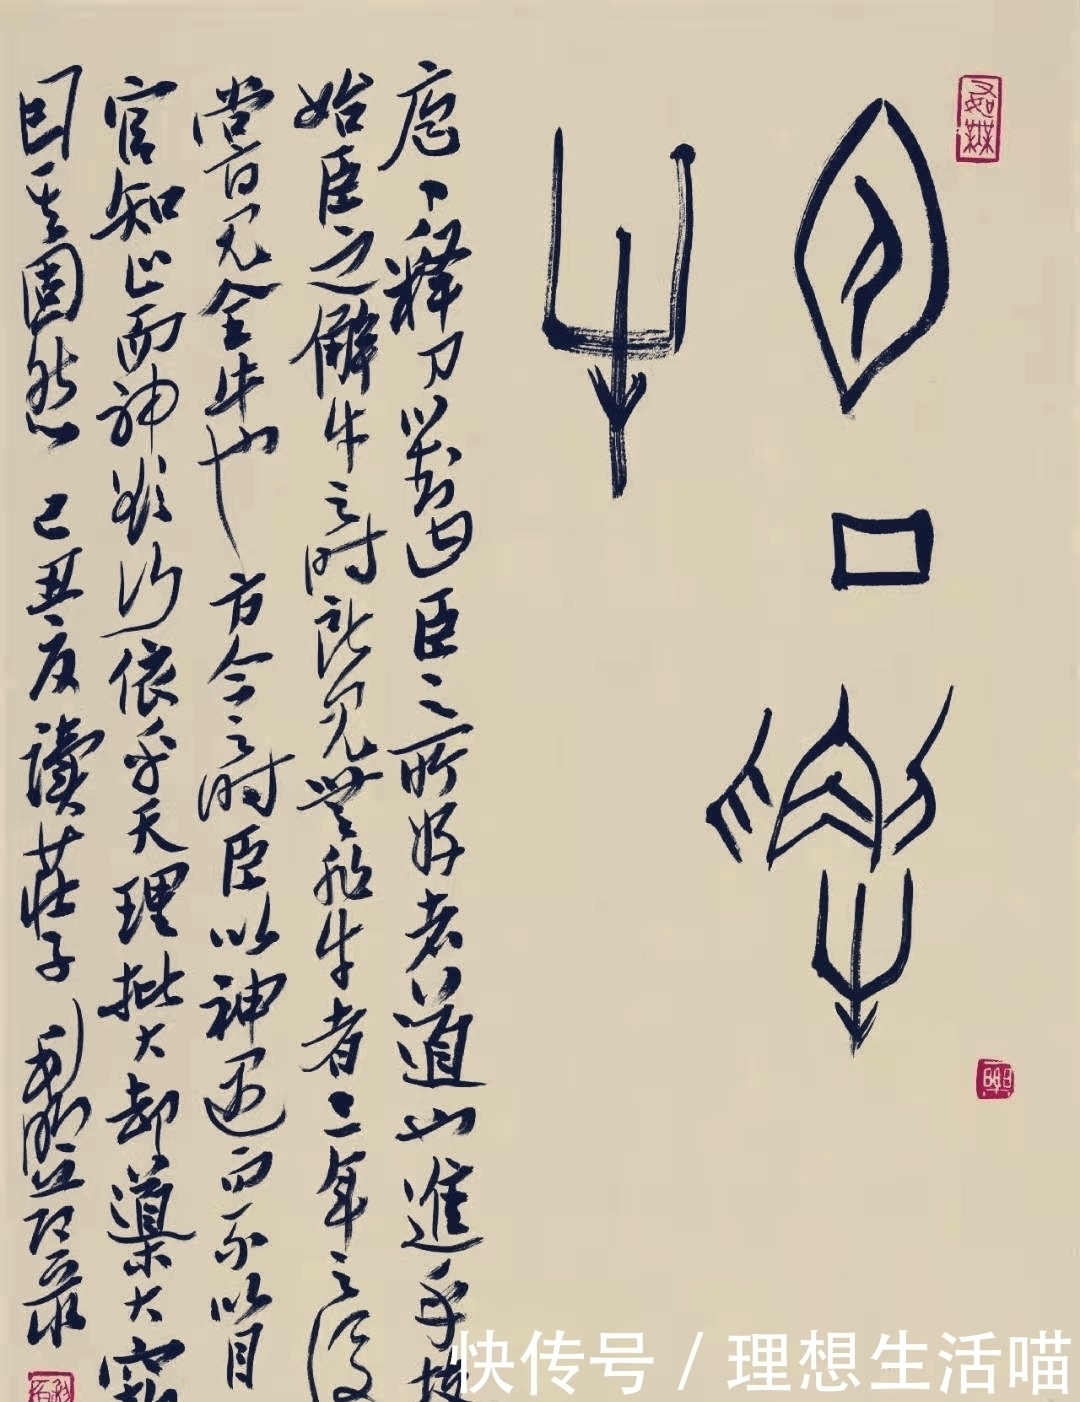 包丁解
牛
庖丁釋刀以對曰臣之所好者道也進乎技
始臣之解牛之时所见無非牛者三年之後
嘗见全牛也方今之时臣以神遇而不以目
官知止而神欲行依乎天理批大郤導大窾
因其固然 己丑夏讀莊子 並録
快传号 / 理想生活喵